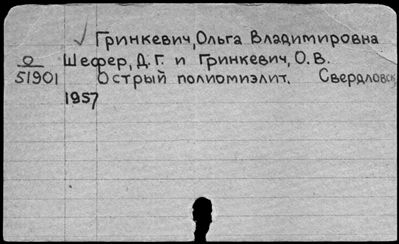 ✓ Гринкевич, Ольга Владимировна
О Шефер, Д. Г. и Гринкевич, О. В.
51901 Острый полиомиэлит. Свердловск
1957